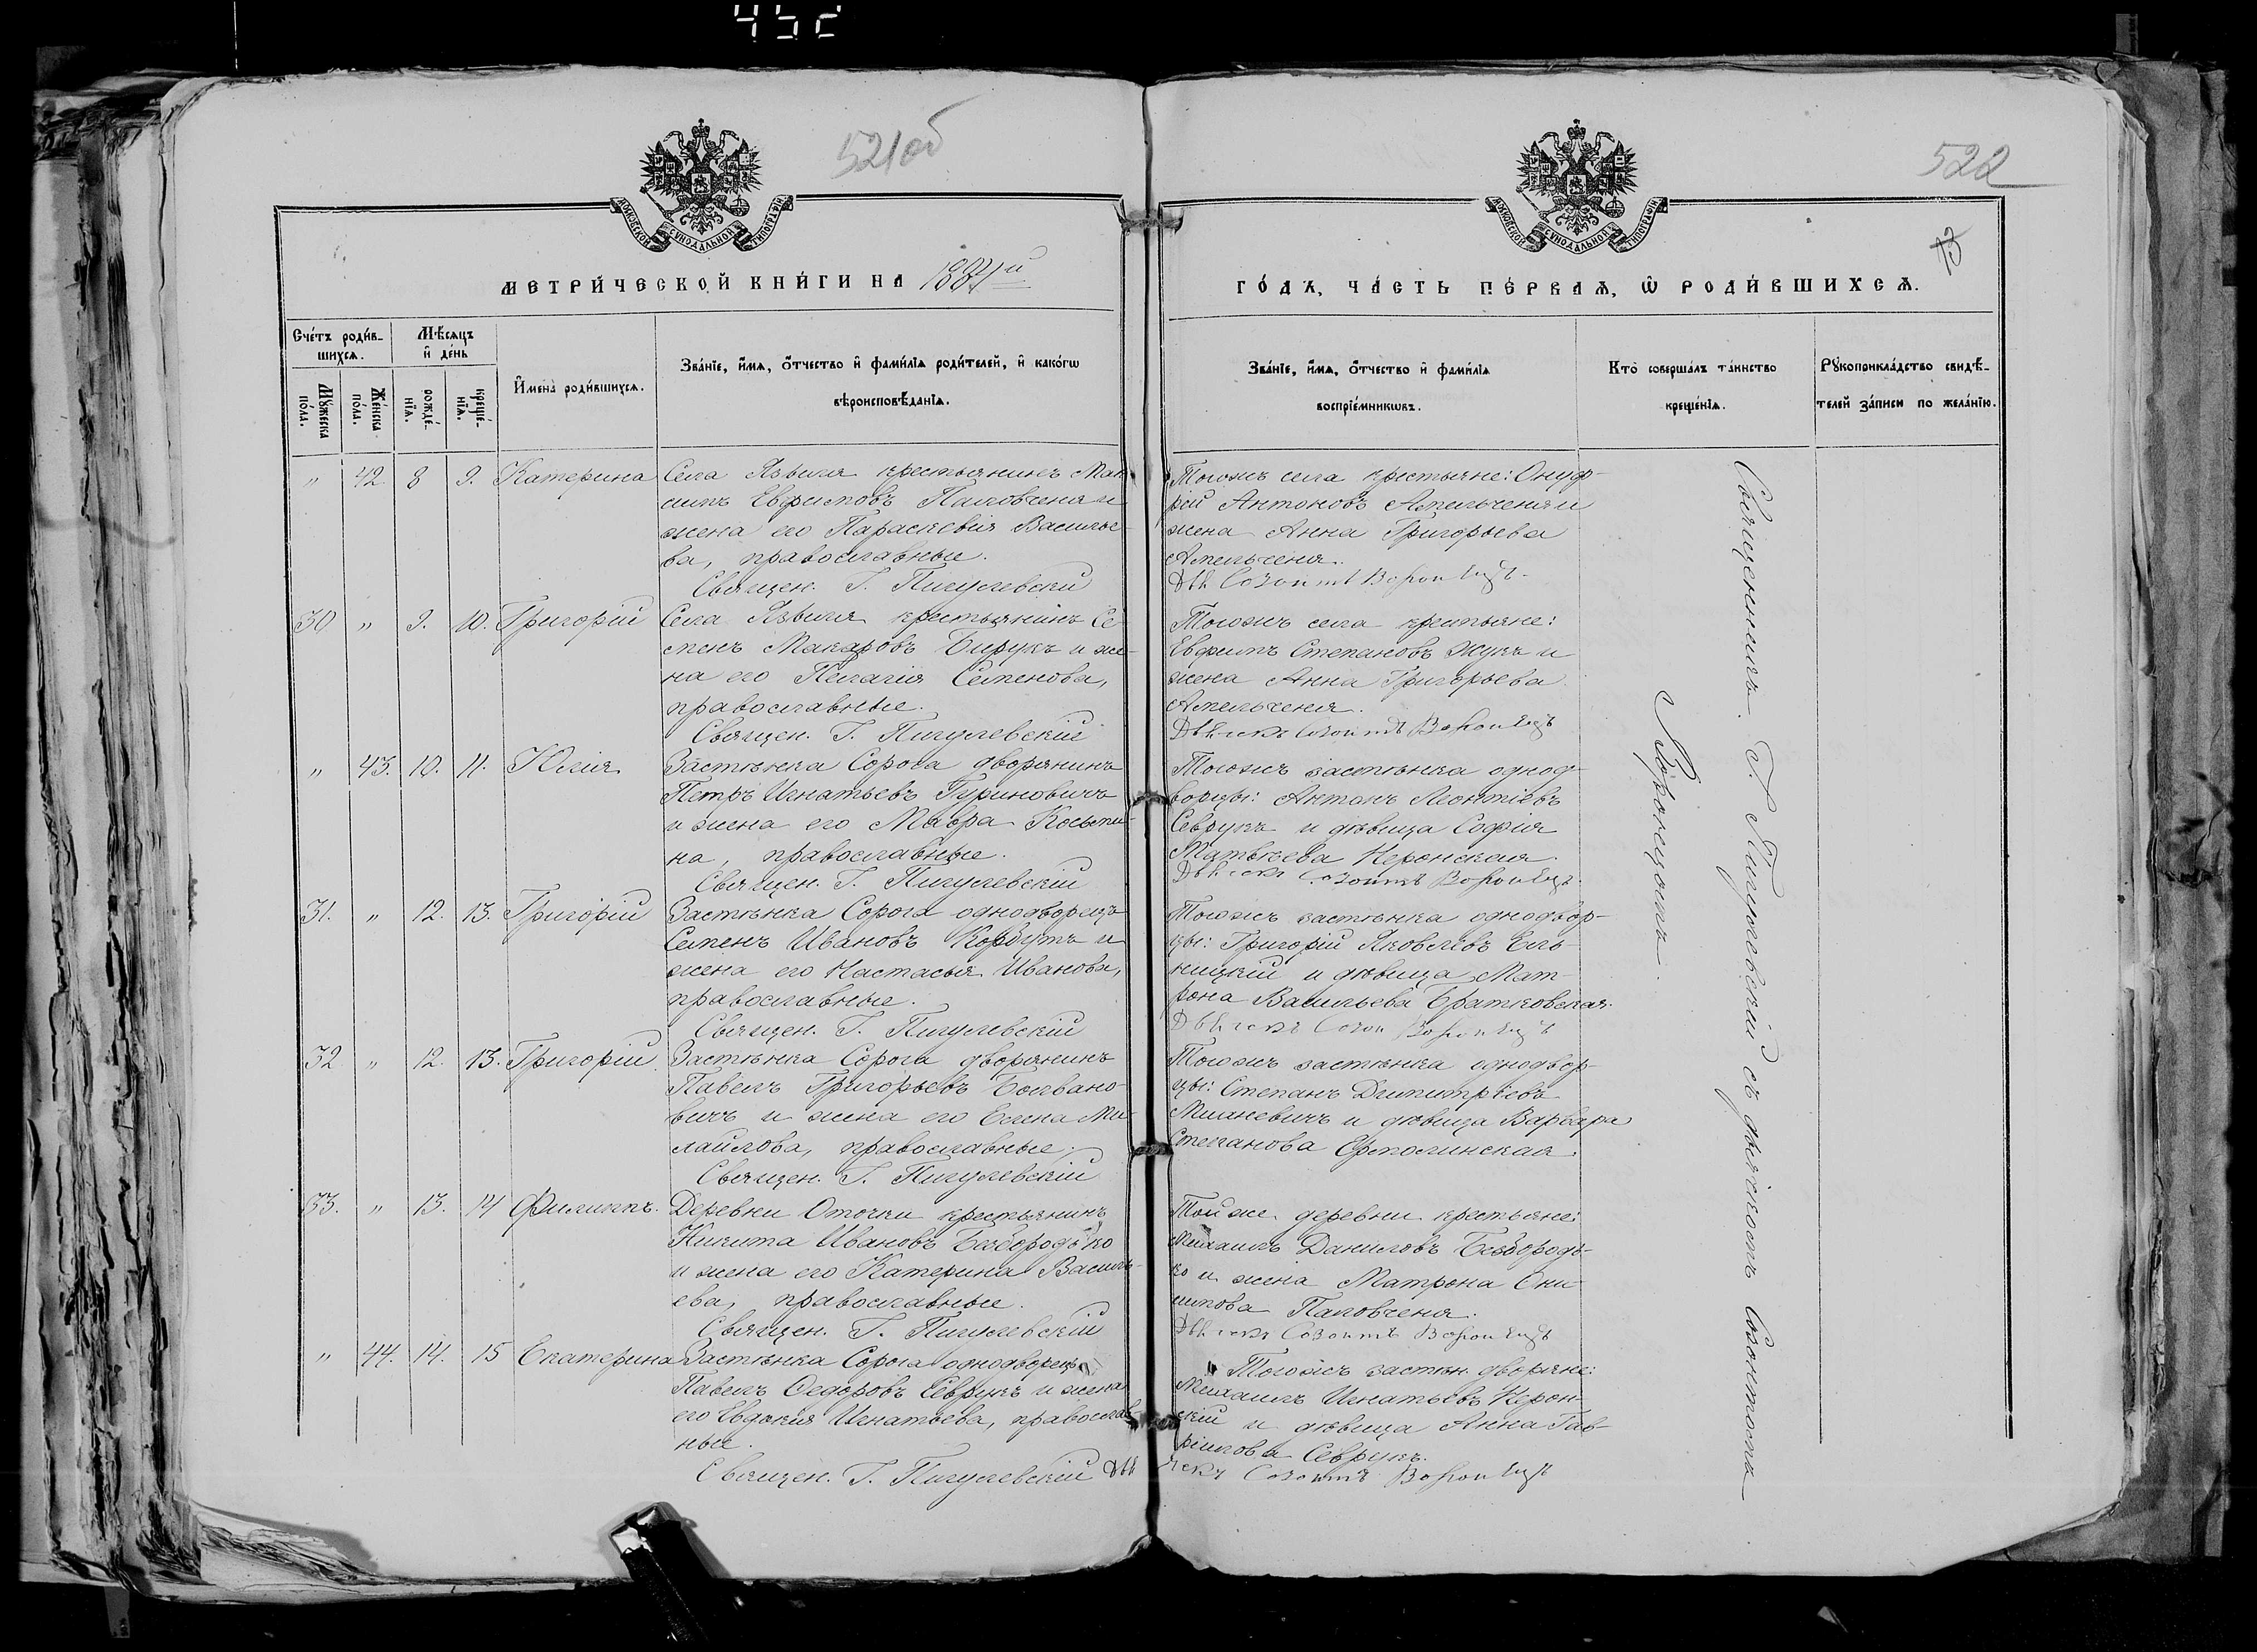 452
521об
522
13
МОСКОВСКОЙ СѴНОДАЛЬНОЙ ТИПОГРАФІИ
МОСКОВСКОЙ СѴНОДАЛЬНОЙ ТИПОГРАФІИ
МЕТРИ́ЧЕСКОЙ КНИ́ГИ НА 1884й
ГО́ДЪ, ЧА́СТЬ ПЕ́РВАѦ, Ѡ РОДИ́ВШИХСѦ.
Сче́тъ роди́в-
шихсѧ.
Му́жеска по́ла.
Же́нска по́ла.
Мѣ́сѧцъ
и де́нь
рожде́-
нїѧ.
креще́-
нїѧ.
Имена̀ роди́вшихсѧ.
Зва́нїе, и́мѧ, о́тчество и фами́лїѧ роди́телей, и како́гѡ
вѣроисповѣ́данїѧ.
Зва́нїе, и́мѧ, о́тчество и фами́лїѧ
воспрїе́мникѡвъ.
Кто̀ соверша́лъ та́инство
креще́нїѧ.
Рꙋкоприкла́дство свидѣ́-
телей за́писи по жела́нїю.
" 42. 8 9. Катерина
Села Язвиля крестьянинъ Мак-
симъ Евфимовъ Паповченя и
жена его Параскевія Василье-
ва, православные.
Священ. Г. Пигулевскій
Тогожъ села крестьяне: Онуф-
рій Антоновъ Амельченя и
жена Анна Григорьева
Амельченя.
30 " 9. 10. Григорій
Села Язвиля крестьянинъ Се-
менъ Макаровъ Бирукъ и же-
на его Пелагія Семенова,
православные.
Священ. Г. Пигулевскій
Тогожъ села крестьяне:
Евфимъ Степановъ Жукъ и
жена Анна Григорьева
Амельченя.
Дьячекъ Созонтъ Воронецъ
" 43. 10. 11. Юлія
Застѣнка Сорога дворянинъ
Петръ Игнатьевъ Гуриновичъ
и жена его Мавра Косьми-
на, православные.
Священ. Г. Пигулевскій
Тогожъ застѣнка однод-
ворцы: Антонъ Леонтіевъ
Севрукъ и дѣвица Софія
Матвѣева Керонская.
Дьячекъ Созонтъ Воронецъ.
31. " 12. 13. Григорій
Застѣнка Сорога однодворецъ
Семенъ Ивановъ Корбутъ и
жена его Настасья Иванова,
православные.
Священ. Г. Пигулевскій
Тогожъ застѣнка однодвор-
цы: Григорій Яковлевъ Ель-
ницкій и дѣвица Мат-
рона Васильева Братковская.
Дьячекъ Созон Воронецъ
32 " 12. 13. Григорій.
Застѣнка Сорога дворянинъ
Павелъ Григорьевъ Болвано-
вичъ и жена его Елена Ми-
хайлова, православные.
Священ. Г. Пигулевскій
Тогожъ застѣнка однодвор-
цы: Степанъ Димитріевъ
и дѣвица Варвара
Степанова
33. " 13. 14 Филиппъ.
Деревни Оточки крестьянинъ
Никита Ивановъ Безбородько
и жена его Катерина Василь-
ева, православные.
Священ. Г. Пигулевскій
Тойже деревни крестьяне:
Михаилъ Даниловъ Безбородь-
ко и жена Матрона Они-
симова Паповченя.
Дьячекъ Созонтъ Воронецъ
" 44. 14. 15 Екатерина
Застѣнка Сорога однодворецъ
Павелъ Федоровъ Севрукъ и жена
его Евдокия Игнатьева, православ-
ные.
Священ. Г. Пигулевскій
Тогожъ застѣн. дворяне:
Михаилъ Игнатьевъ Керон-
скій и дѣвица Анна Гав-
рілова Севрукъ.
Дьячекъ Созонтъ Воронецъ
Священникъ Г. Пигулевскій съ дьячкомъ Созонтомъ
Воронцомъ.